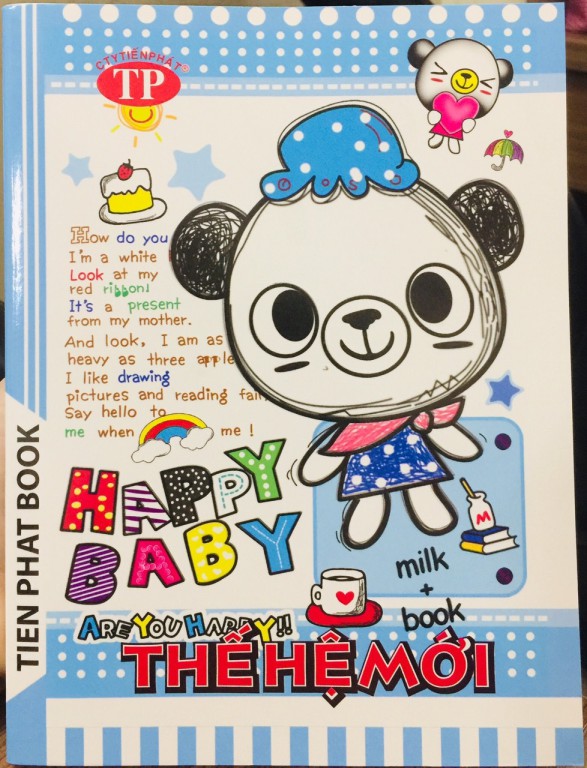 CTYTIẾNPHÁT®
TP
How do you
I'm a white
Look at my
red ribbon!
It's a present
from my mother.
And look, I am as
heavy as three apple
I like drawing
pictures and reading fair
Say hello to
me when me !
HAPPY
BABY
M
milk
+
book
ARE YOU HAPPY!!
THẾ HỆ MỚI
TIEN PHAT BOOK